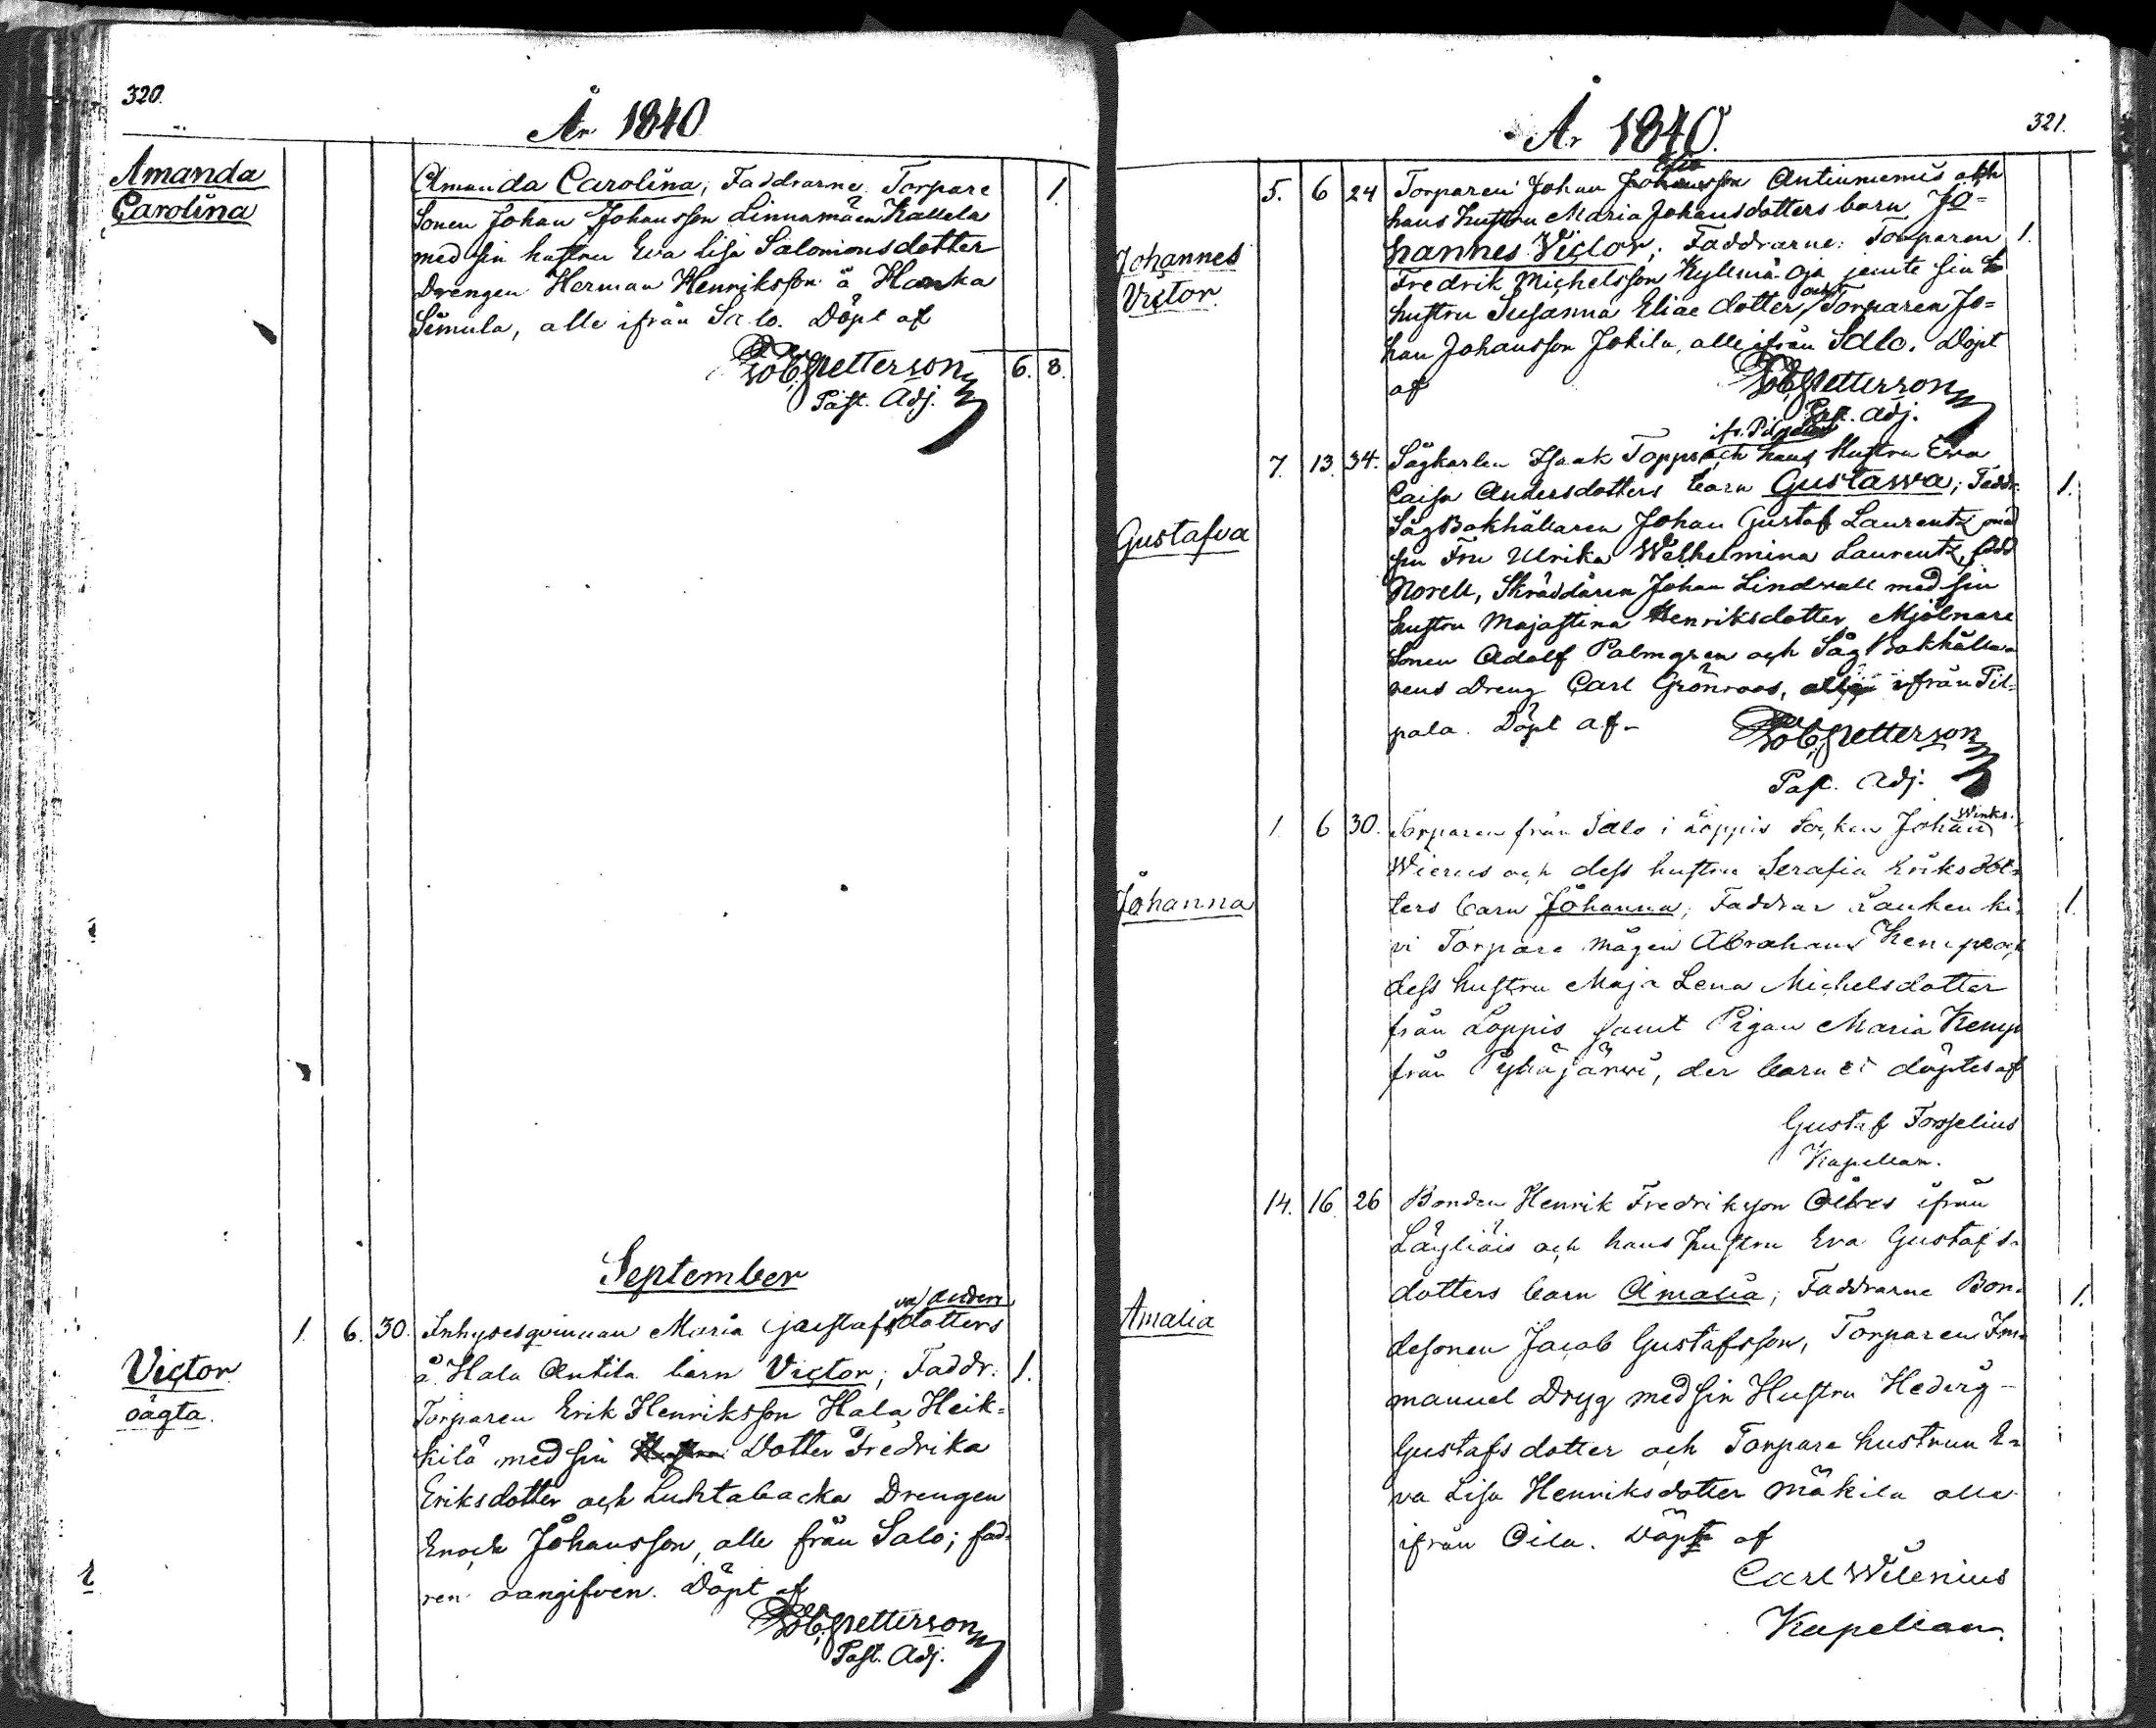 320.
År 1840
Amanda
Carolina
Amanda Carolina; Faddrarne Torpare 1.
Sonen Johan Johansson Linnamäen Kallela
med sin hustru Eva Lisa Salomonsdotter
Drengen Herman Henriksson å Hanka
Simula, alle ifrån Salo. Döpt af
Petterson 6. 8.
Past. Adj.
September
va Anders
1. 6. 30. Inhysesqvinnan Maria Gustafsdotters
Victor
oägta.
å Hala Antila barn Victor; Faddr: 1.
Torparen Erik Henriksson Hala Heik=
kilä med sin Dotter Fredrika
Eriksdotter och Luhtabacka Drengen
Enoch Johansson, alle från Salo; fad=
ren oangifven. Döpt af
Petterson
Past. Adj.
År 1840.
321.
5. 6 24 Torparen Johan Antinniemis och
hans hustru Maria Johansdotters barn Jo=
Johannes
Victor.
hannes Victor; Faddrarne: Torparen 1.
Fredrik Michelsson Kylmä Oja jemte sin
hustru Susanna Eliae dotter och Torparen Jo=
han Johansson Jokila, alle ifrån Salo. Döpt
af Petterson
Past. Adj.
ifr. Pilpala
7. 13. 34. Sågkarlen Isaak Topps och hans Hustru Eva
Caisa Andersdotters barn Gustawa; Faddr: 1.
Gustafva
Såg Bokhållaren Johan Gustaf Laurentz med
sin Fru Ulrika Wilhelmina Laurentz, född
Norell, Skräddaren Johan Lindwall med sin
hustru Majastina Henriksdotter, Mjölnare
Sonen Adolf Palmgren och Såg Bokhålla=
rens Dreng Carl Grönroos, alla ifrån Pil=
pala. Döpt af- Petterson
Past. Adj.
1. 6 30. Torparen från Salo i Loppis Socken Johan
Wierus och dess hustru Serafia Eriksdot=
Johanna
ters barn Johanna; Faddrar Lauhenki= 1.
vi Torpare mågen Abraham Kemp och
dess hustru Maja Lena Michelsdotter
från Loppis samt Pigan Maria Kemp
från Pyhäjärvi, der barnet döptes af
Gustaf Forselius
Kapellan.
14. 16. 26 Bonden Henrik Fredriksson ifrån
Läyliäis och hans hustru Eva Gustafs=
Amalia
dotters barn Amalia; Faddrarne Bon= 1.
desonen Jacob Gustafsson, Torparen Im=
manuel Dryg med sin Hustru Hedvig
Gustafsdotter och Torpare hustrun E=
va Lisa Henriksdotter Mäkilä alla
ifrån Oila. Döpt af
Carl Wilenius
Kapellan.